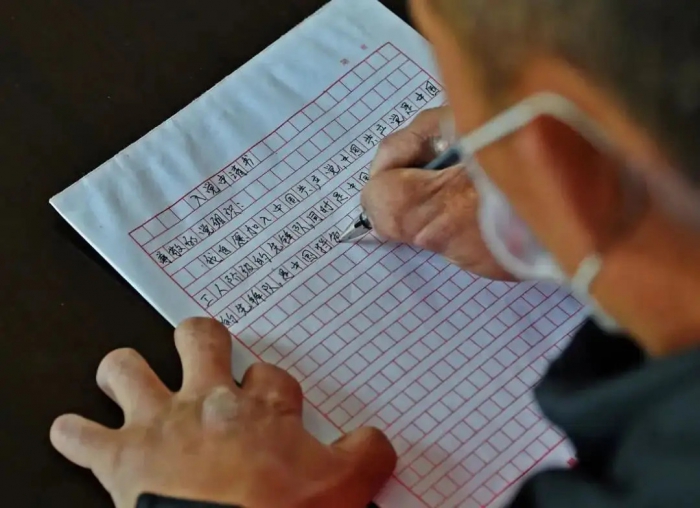 入党申请书
尊敬的党组织:
我自愿加入中国共产党,中国共产党是中国
工人阶级的先锋队,同时是中国
的先锋队,是中国特色